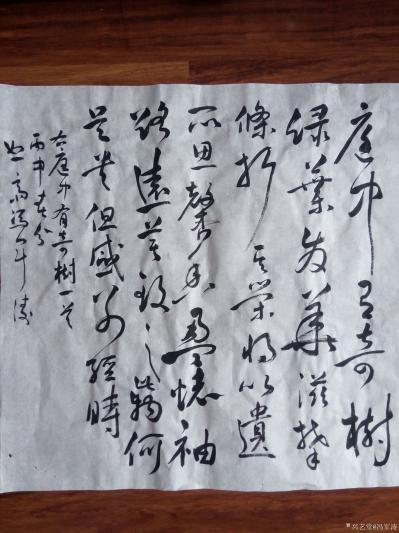 庭中有奇樹
绿葉发華滋攀
條折其荣将以遺
所思馨香盈懷袖
路遠莫致之此物何
足贵但感别經時
古庭中有奇樹一首
丙申春分
兴艺堂@冯军涛